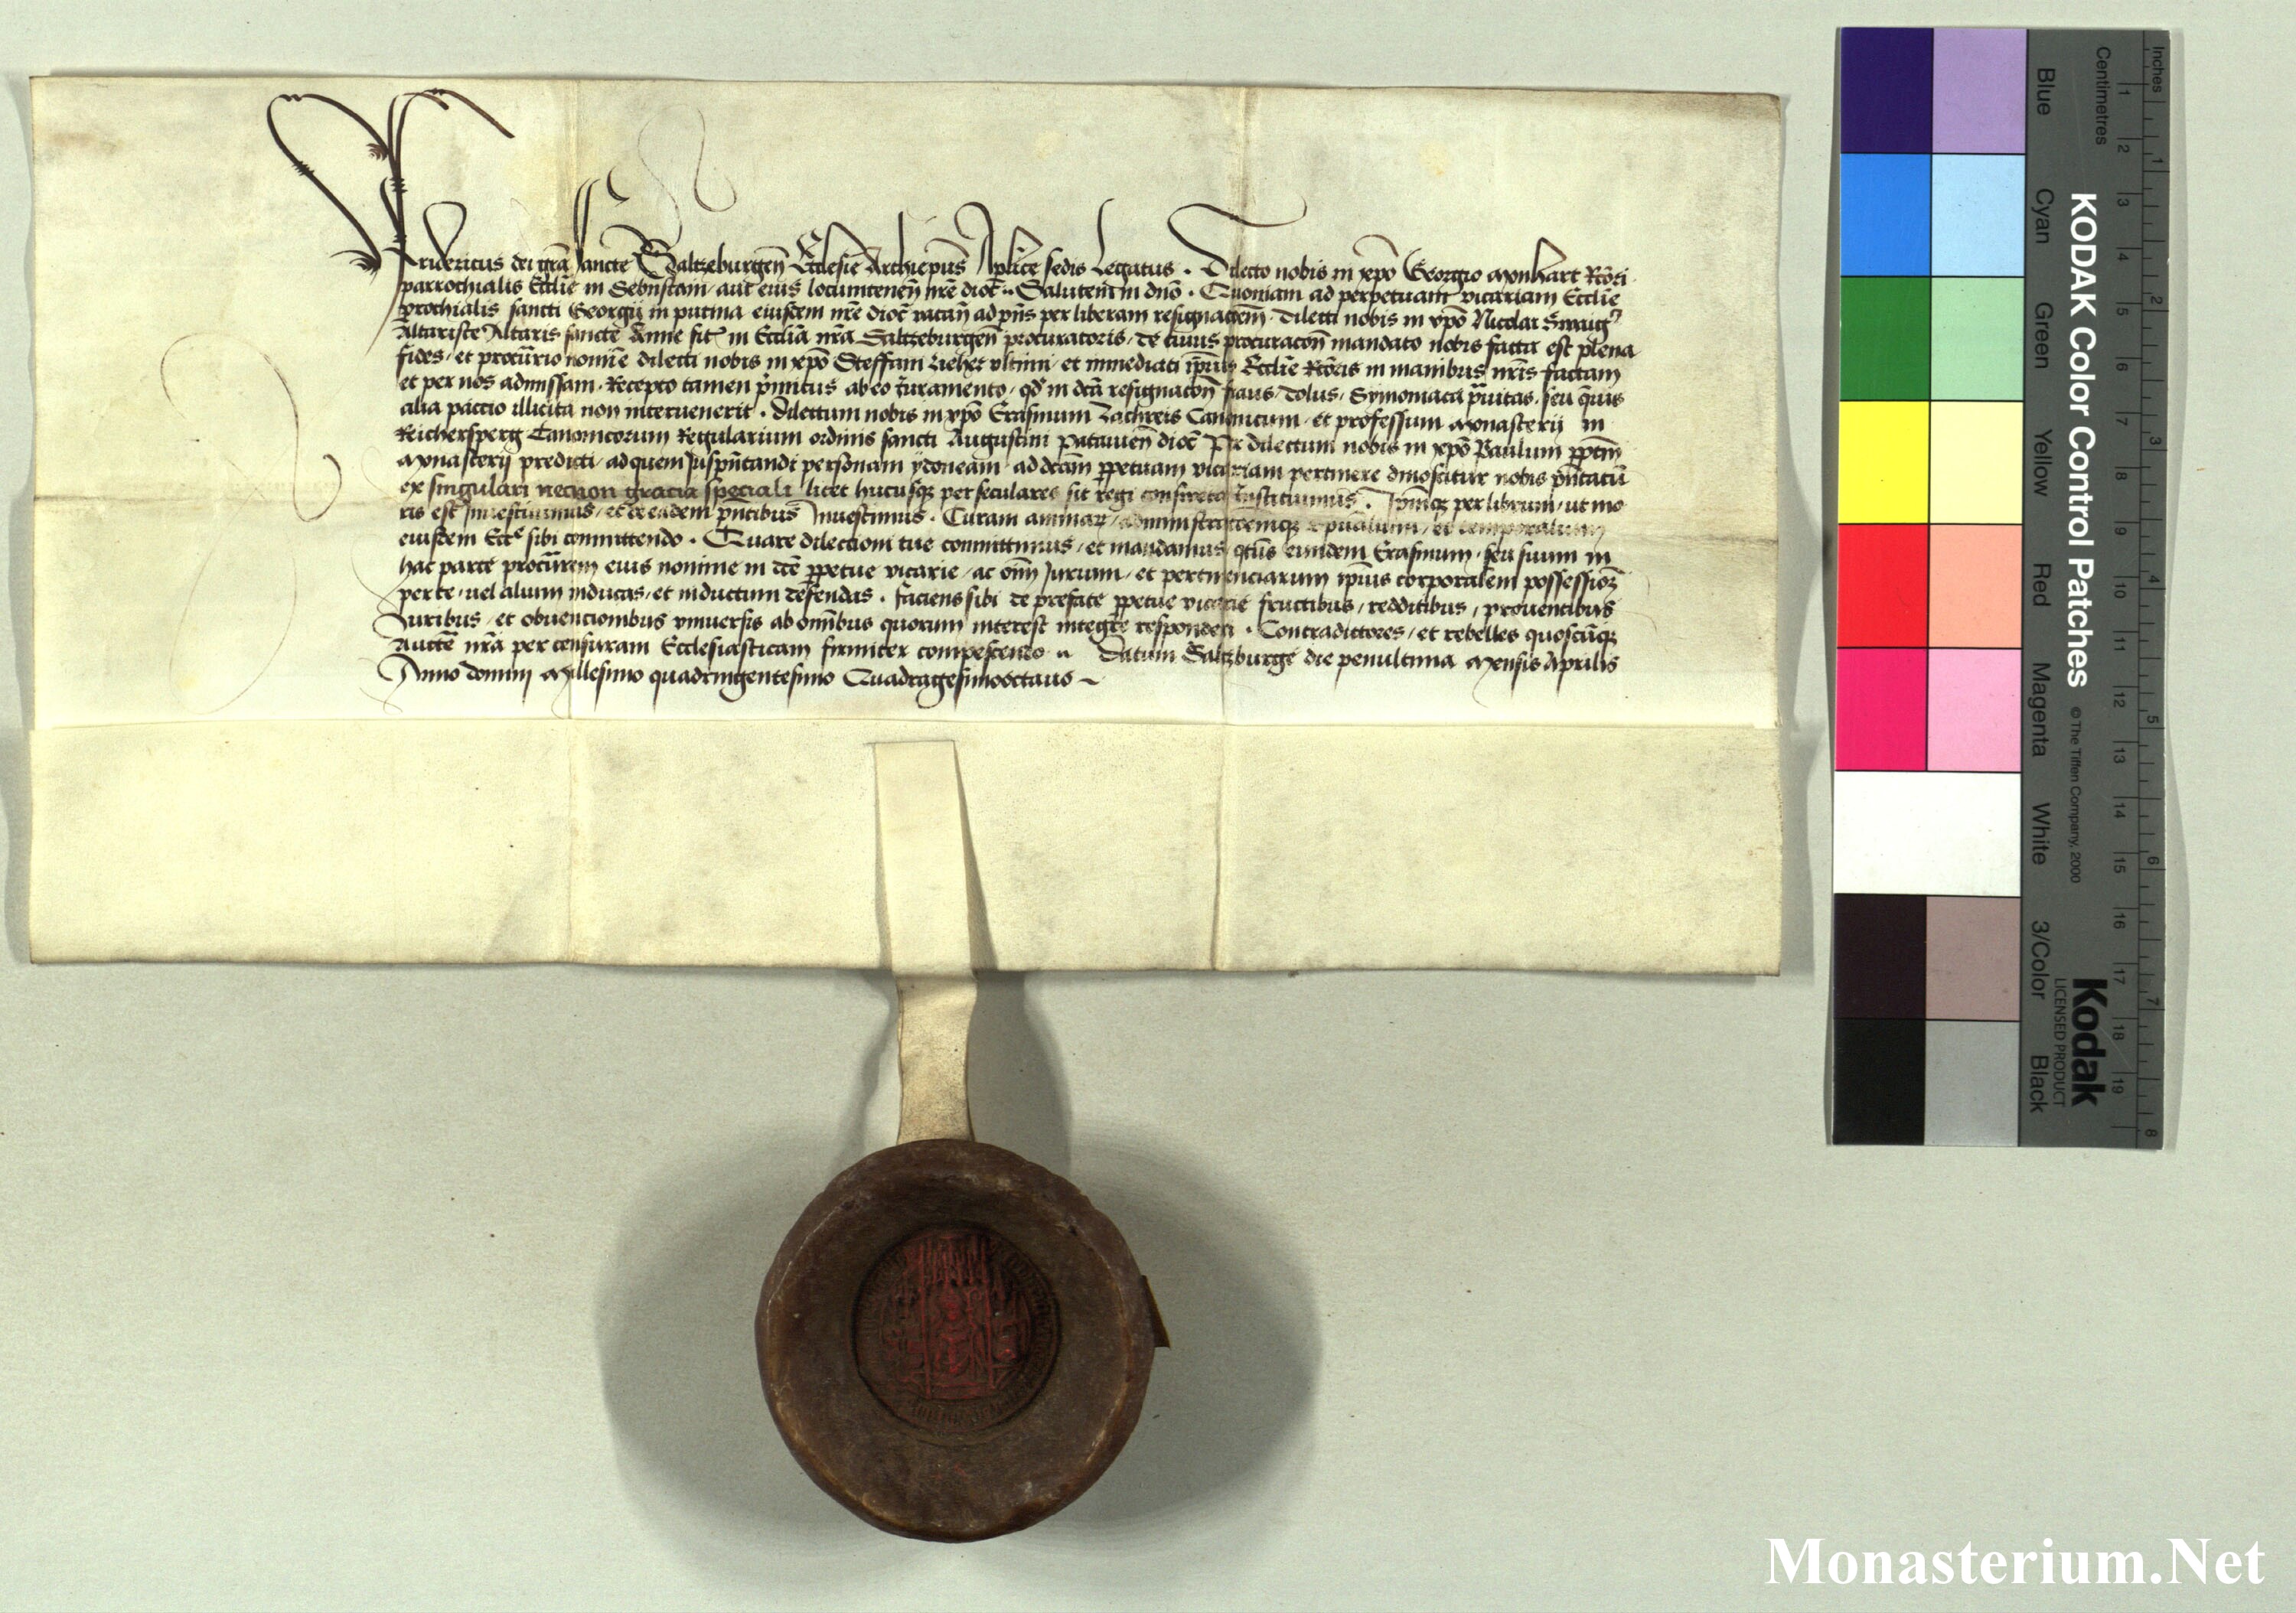 Fridericus dei grã sancte Saltzeburgeñ Ecclesie Archiepũs Aplice sedis Legatus . Dilecto nobis in xpõ Georgio Monhart Rc̃ori
parrochialis Ecclie in aut eius locumteneñ nr̃e dioc̃ Salutem in dnõ . Quoniam ad perpetuam vicariam Ecclie
prochialis sancti Georgij in putina eiusdem nr̃e dioc̃ vacañ ad pñs per liberam resignac̃oem dilecti nobis in xpõ Nicolai
Altariste Altaris sancte Anne sit in Ecclia nr̃a Saltzeburgeñ procuratoris / de cuius procuracoñ mandato nobis facta est plena
fides / et procur̃io nomie dilecti nobis in xpõ Steffani vltimi / et immediati ip̃ius Ecclie Rc̃oris in manibus nr̃is factam
et per nos admissam . Recepto tamen p̃mitus ab eo iuramento / qd̃ in dc̃a resignacoñ fraus / dolus / Symoniaca p̃uitas / seu q̃uis
alia paccio illicita non interuenerit . dilectum nobis in xpõ Erasmum Canonicum / et professum Monasterij in
Reichersperg Canonicorum Regularium ordinis sancti Augustini Patauieñ dioc̃ Per dilectum nobis in xpõ Paulum pp̃tm
Monasterij predicti / ad quem Jus pñtandi personam ydoneam / ad dictam ppetuam vicariam pertinere dinoscitur nobis pñtatũ
ex singulari necnon gracia speciali licet hucusqz per seculares sit regi consueta Instituimus . Ip̃umqz per librum / ut mo
ris est Inuestiuimus / et de eadem pñtibus Inuestimus . Curam animarz / administracoemqz spũalium / et temporalium
eiusdem Eccẽ sibi committendo . Quare dilectioni tue committimus / et mandamus / qtũs eundem Erasmum / seu suum in
hac parte procũrem eius nomine in dc̃e ppetue vicarie / ac om̃ Jurium / et pertinenciarum ip̃ius corporalem possessioẽz
per te / uel alium inducas / et inductum defendas . faciens sibi de prefate ppetue vicarie fructibus / redditibus / prouentibus
Juribus / et obuencionibus vniuersis ab om̃ibus quorum interest integre responderi . Contradictores / et rebelles quoscũqz
Auctẽ nr̃a per censuram Ecclesiasticam firmiter compescendo .. Datum Saltzburge die penultima Mensis Aprilis
Anno domini Millesimo quadringentesimo Quadragesimooctauo ~
Inches
Centimetres
1 2 3 4 5 6 7 8 9 10 11 12 13 14 15 16 17 18 19
1 2 3 4 5 6 7 8
KODAK Color Control Patches
© The Tiffen Company, 2000
Kodak
LICENSED PRODUCT
Blue Cyan Green Yellow Red Magenta White 3/Color Black
Monasterium.Net